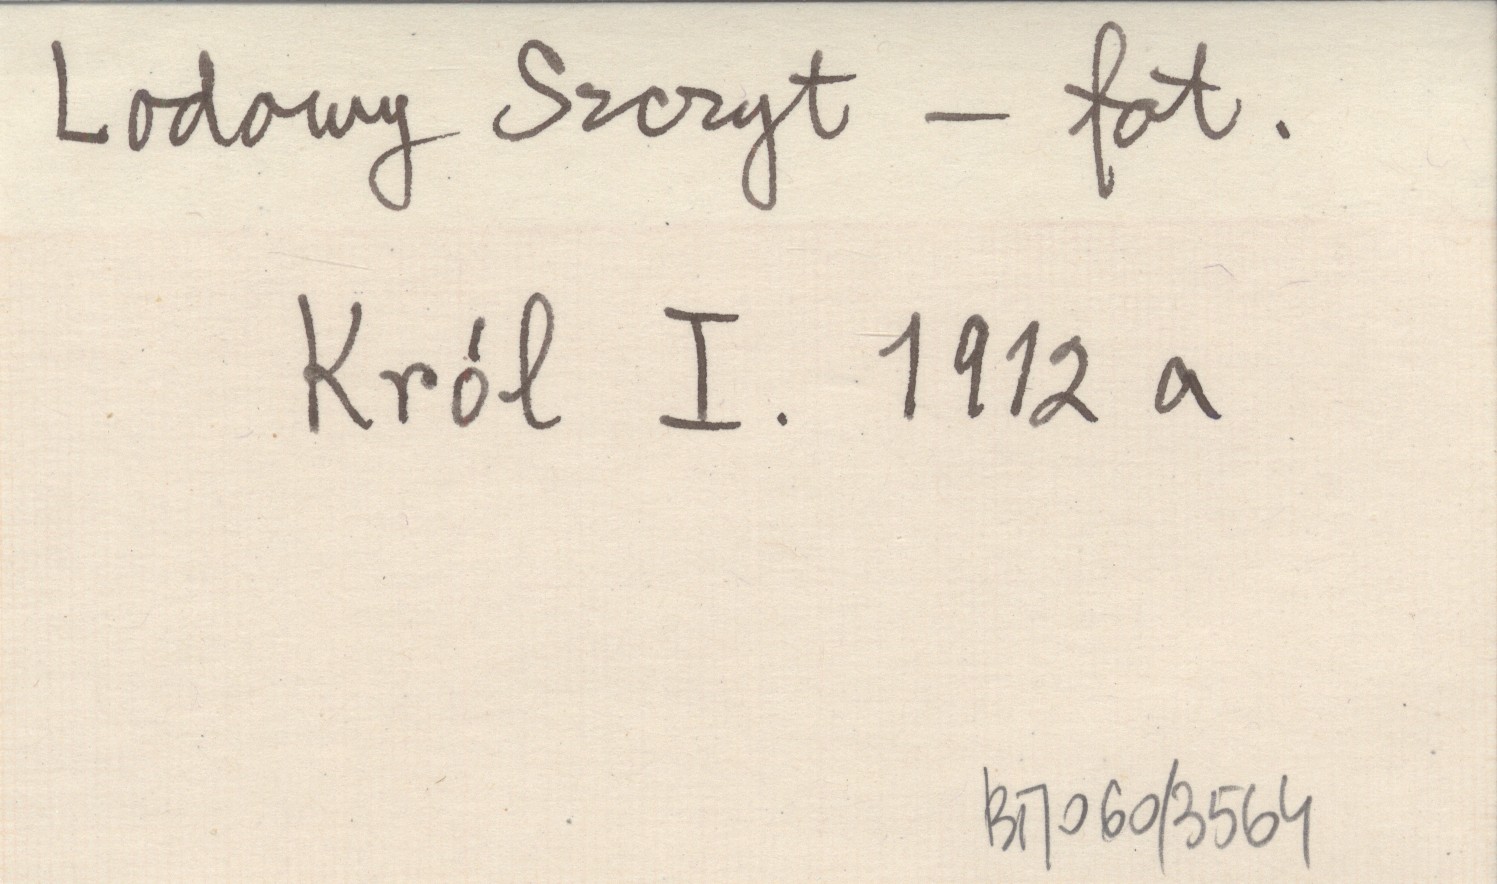 Lodowy Szczyt – fot.
Król I. 1912 a
BT/060/3564